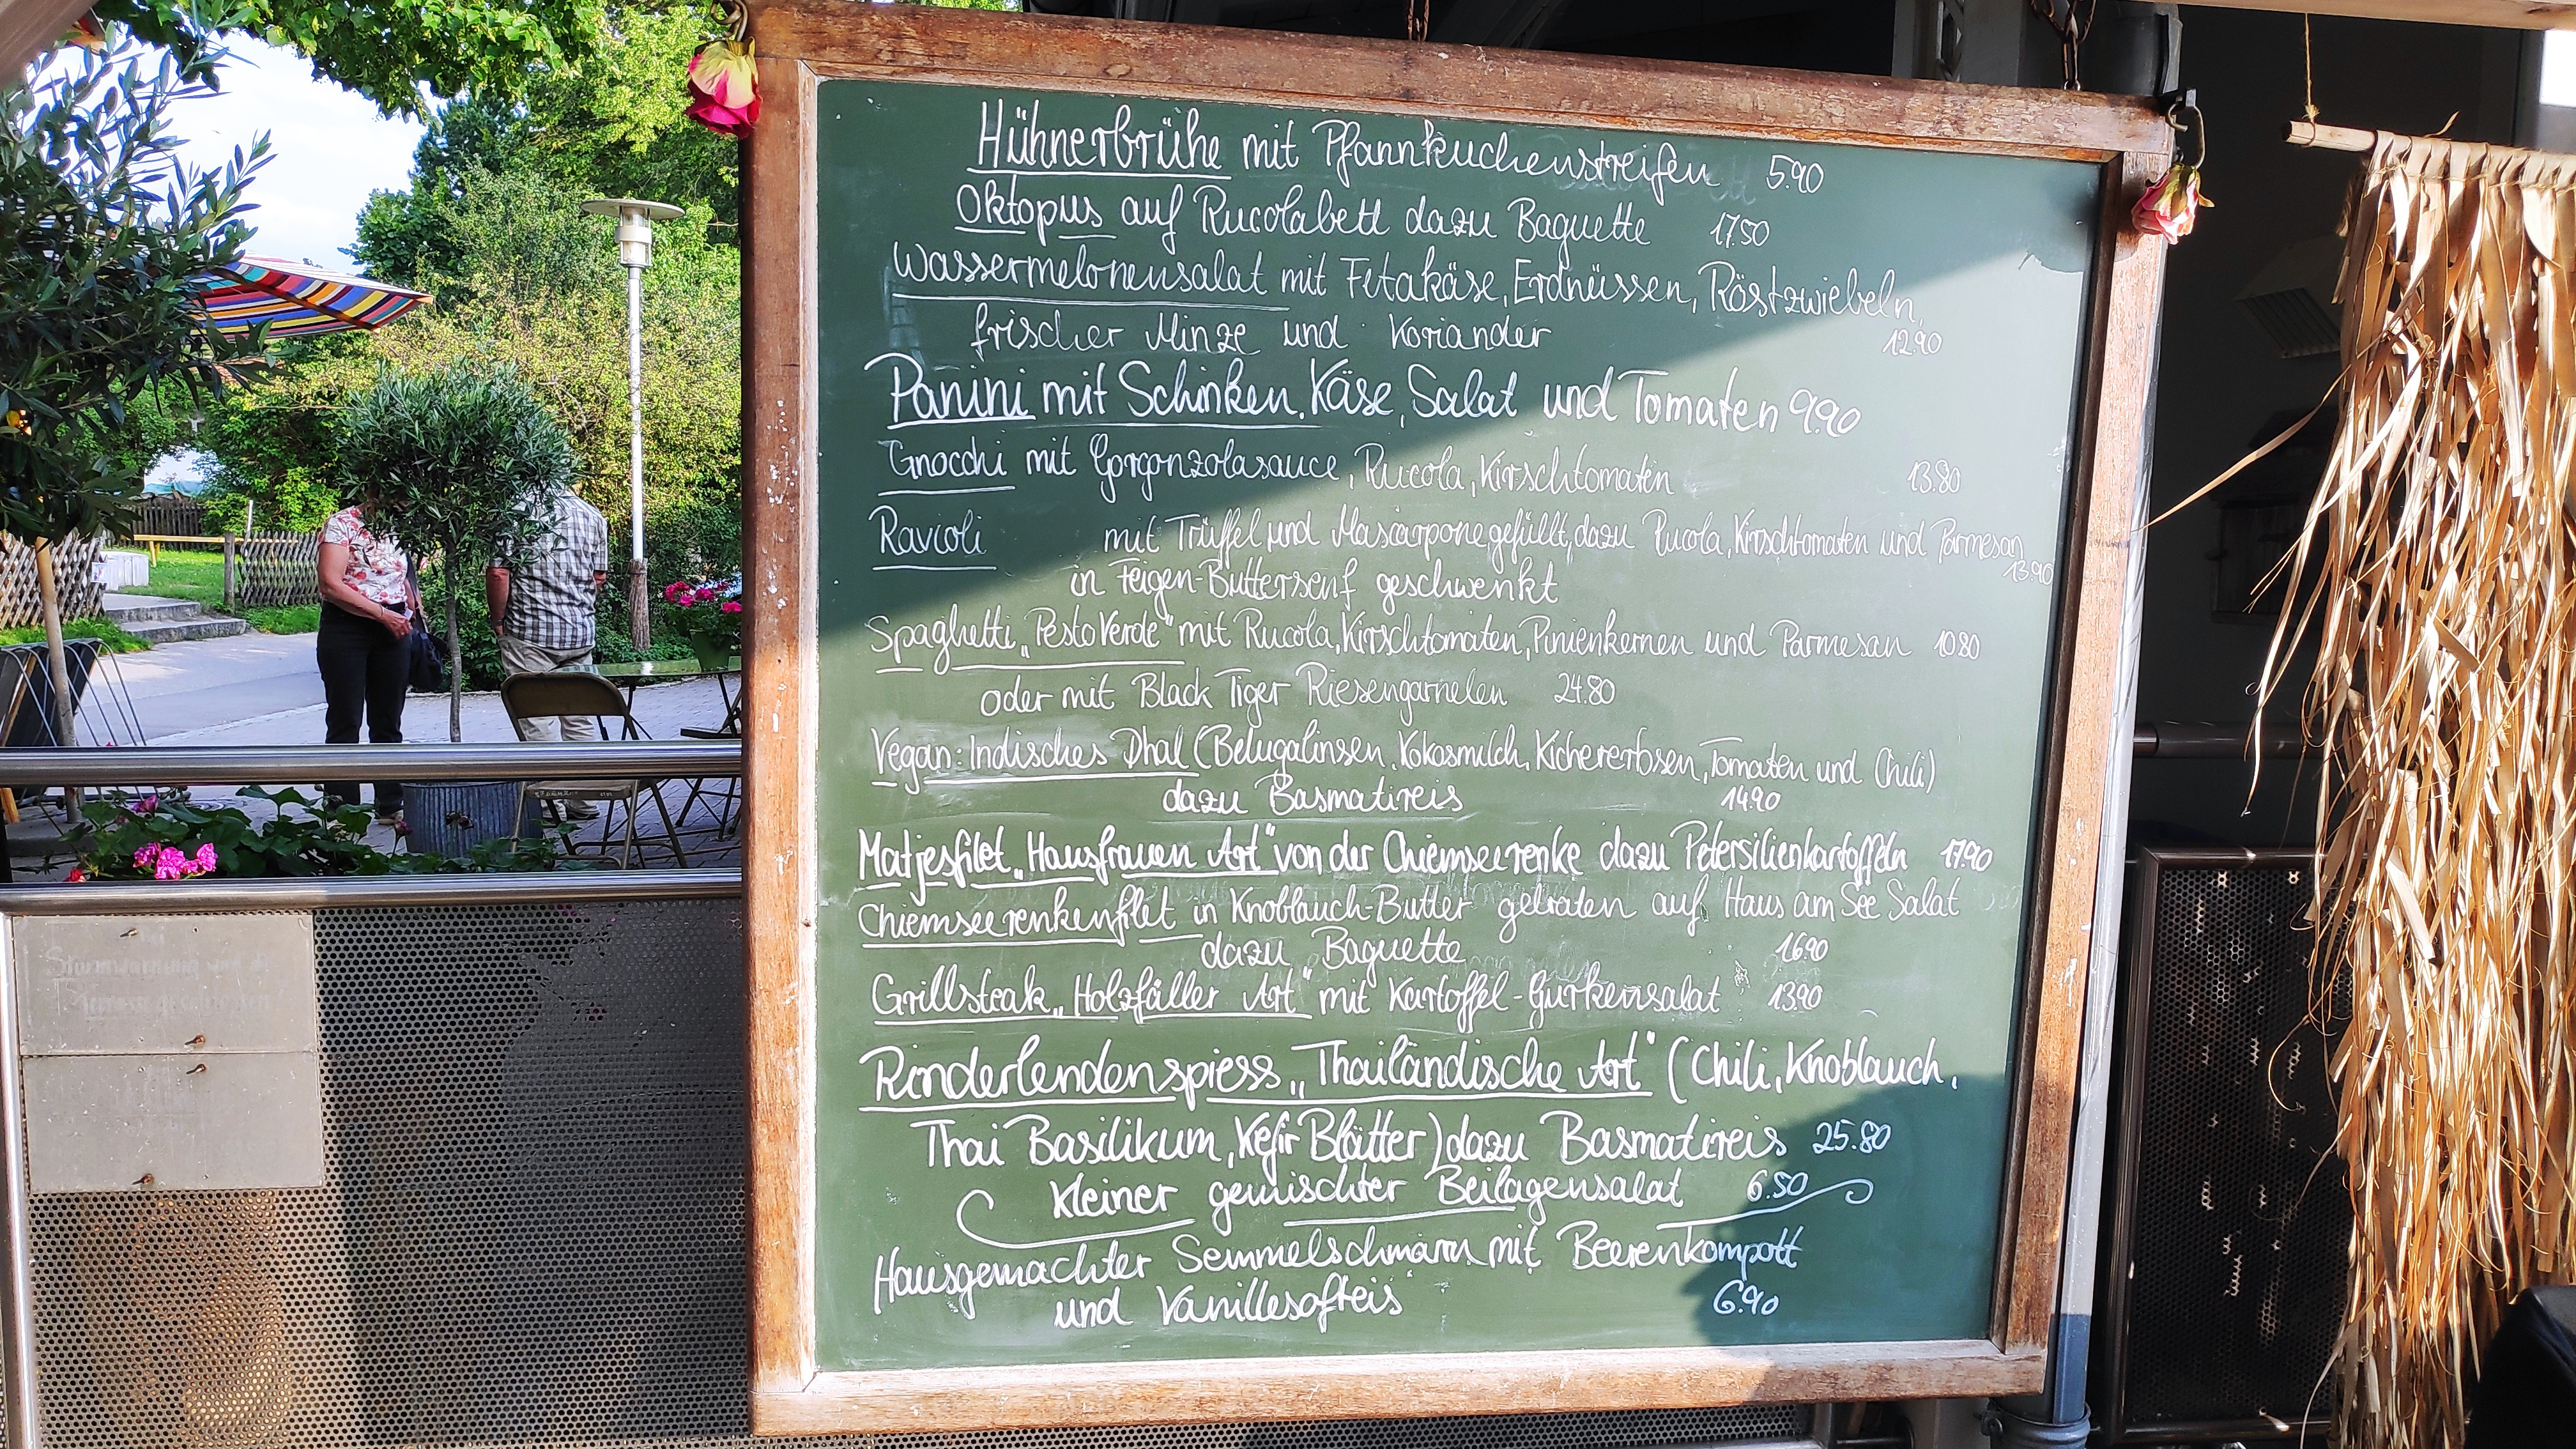 Hühnerbrühe mit Pfannkuchenstreifen 5.90
Oktopus auf Rucolabett dazu Baguette 17.50
Wassermelonensalat mit Fetakäse, Erdnüssen, Röstzwiebeln,
frischer Minze und Koriander 12.90
Panini mit Schinken, Käse, Salat und Tomaten 9.90
Gnocchi mit Gorgonzolasauce, Rucola, Kirschtomaten 13.80
Ravioli mit Trüffel und Mascarpone gefüllt, dazu Rucola, Kirschtomaten und Parmesan
in Feigen-Buttersenf geschwenkt 13.90
Spaghetti „Pesto Verde" mit Rucola, Kirschtomaten, Pinienkernen und Parmesan 10.80
oder mit Black Tiger Riesengarnelen 24.80
Vegan: Indisches Dhal (Belugalinsen, Kokosmilch, Kichererbsen, Tomaten und Chili)
dazu Basmatireis 14.90
Matjesfilet „Hausfrauen Art" von der Chiemseerenke dazu Petersilienkartoffeln 17.90
Chiemseerenkenfilet in Knoblauch-Butter gebraten auf Haus am See Salat
dazu Baguette 16.90
Grillsteak „Holzfäller Art" mit Kartoffel-Gurkensalat 13.90
Rinderlendenspiess „Thailändische Art" (Chili, Knoblauch,
Thai Basilikum, Kefir Blätter) dazu Basmatireis 25.80
Kleiner gemischter Beilagensalat 6.50
Hausgemachter Semmelschmarrn mit Beerenkompott
und Vanillesofteis 6.90